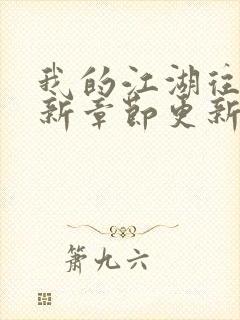 我的江湖往
新章节更新
萧九六